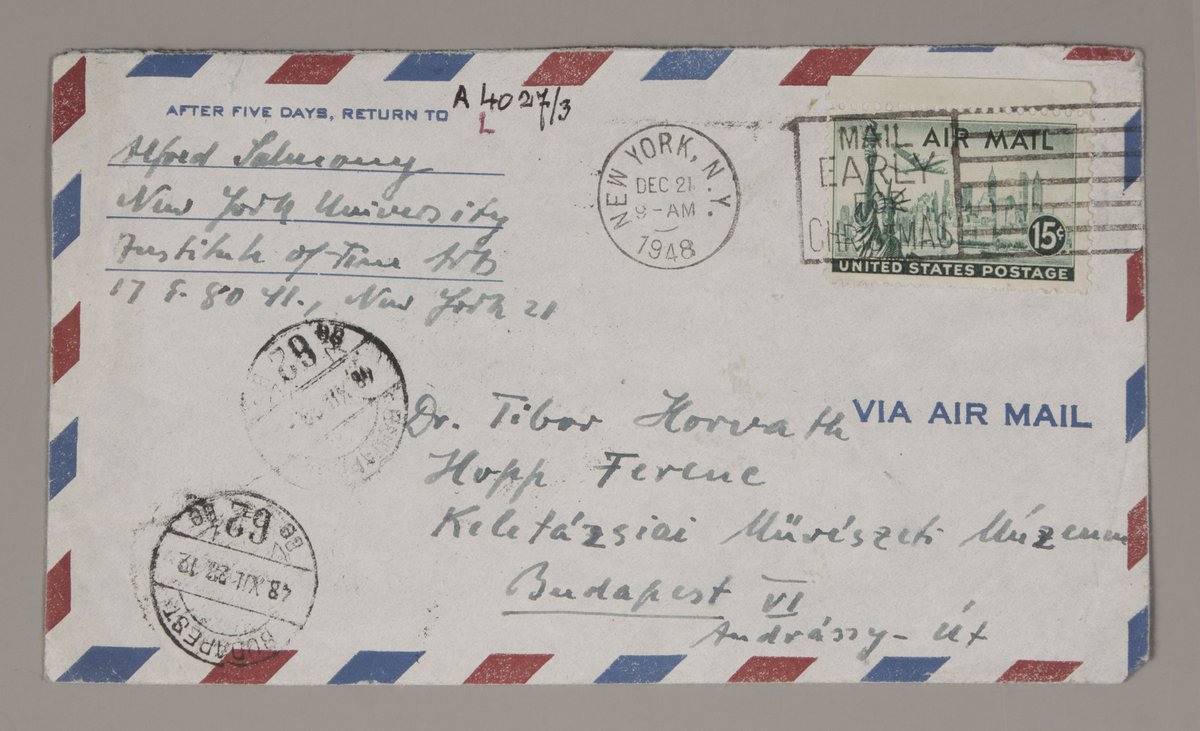 AFTER FIVE DAYS, RETURN TO
A 4027/3
L
Alfred Salmony
New York University
Institute of Fine Arts
17 E. 80 St., New York 21
NEW YORK, N.Y.
DEC 21
9-AM
1948
MAIL
EARLY
FOR
CHRISTMAS
AIR MAIL
15¢
UNITED STATES POSTAGE
VIA AIR MAIL
Dr. Tibor Horvath
Hopp Ferenc
Keletázsiai Művészeti Múzeum
Budapest VI
Andrássy-Út
62
BUDAPEST
62
48.XII.28.12